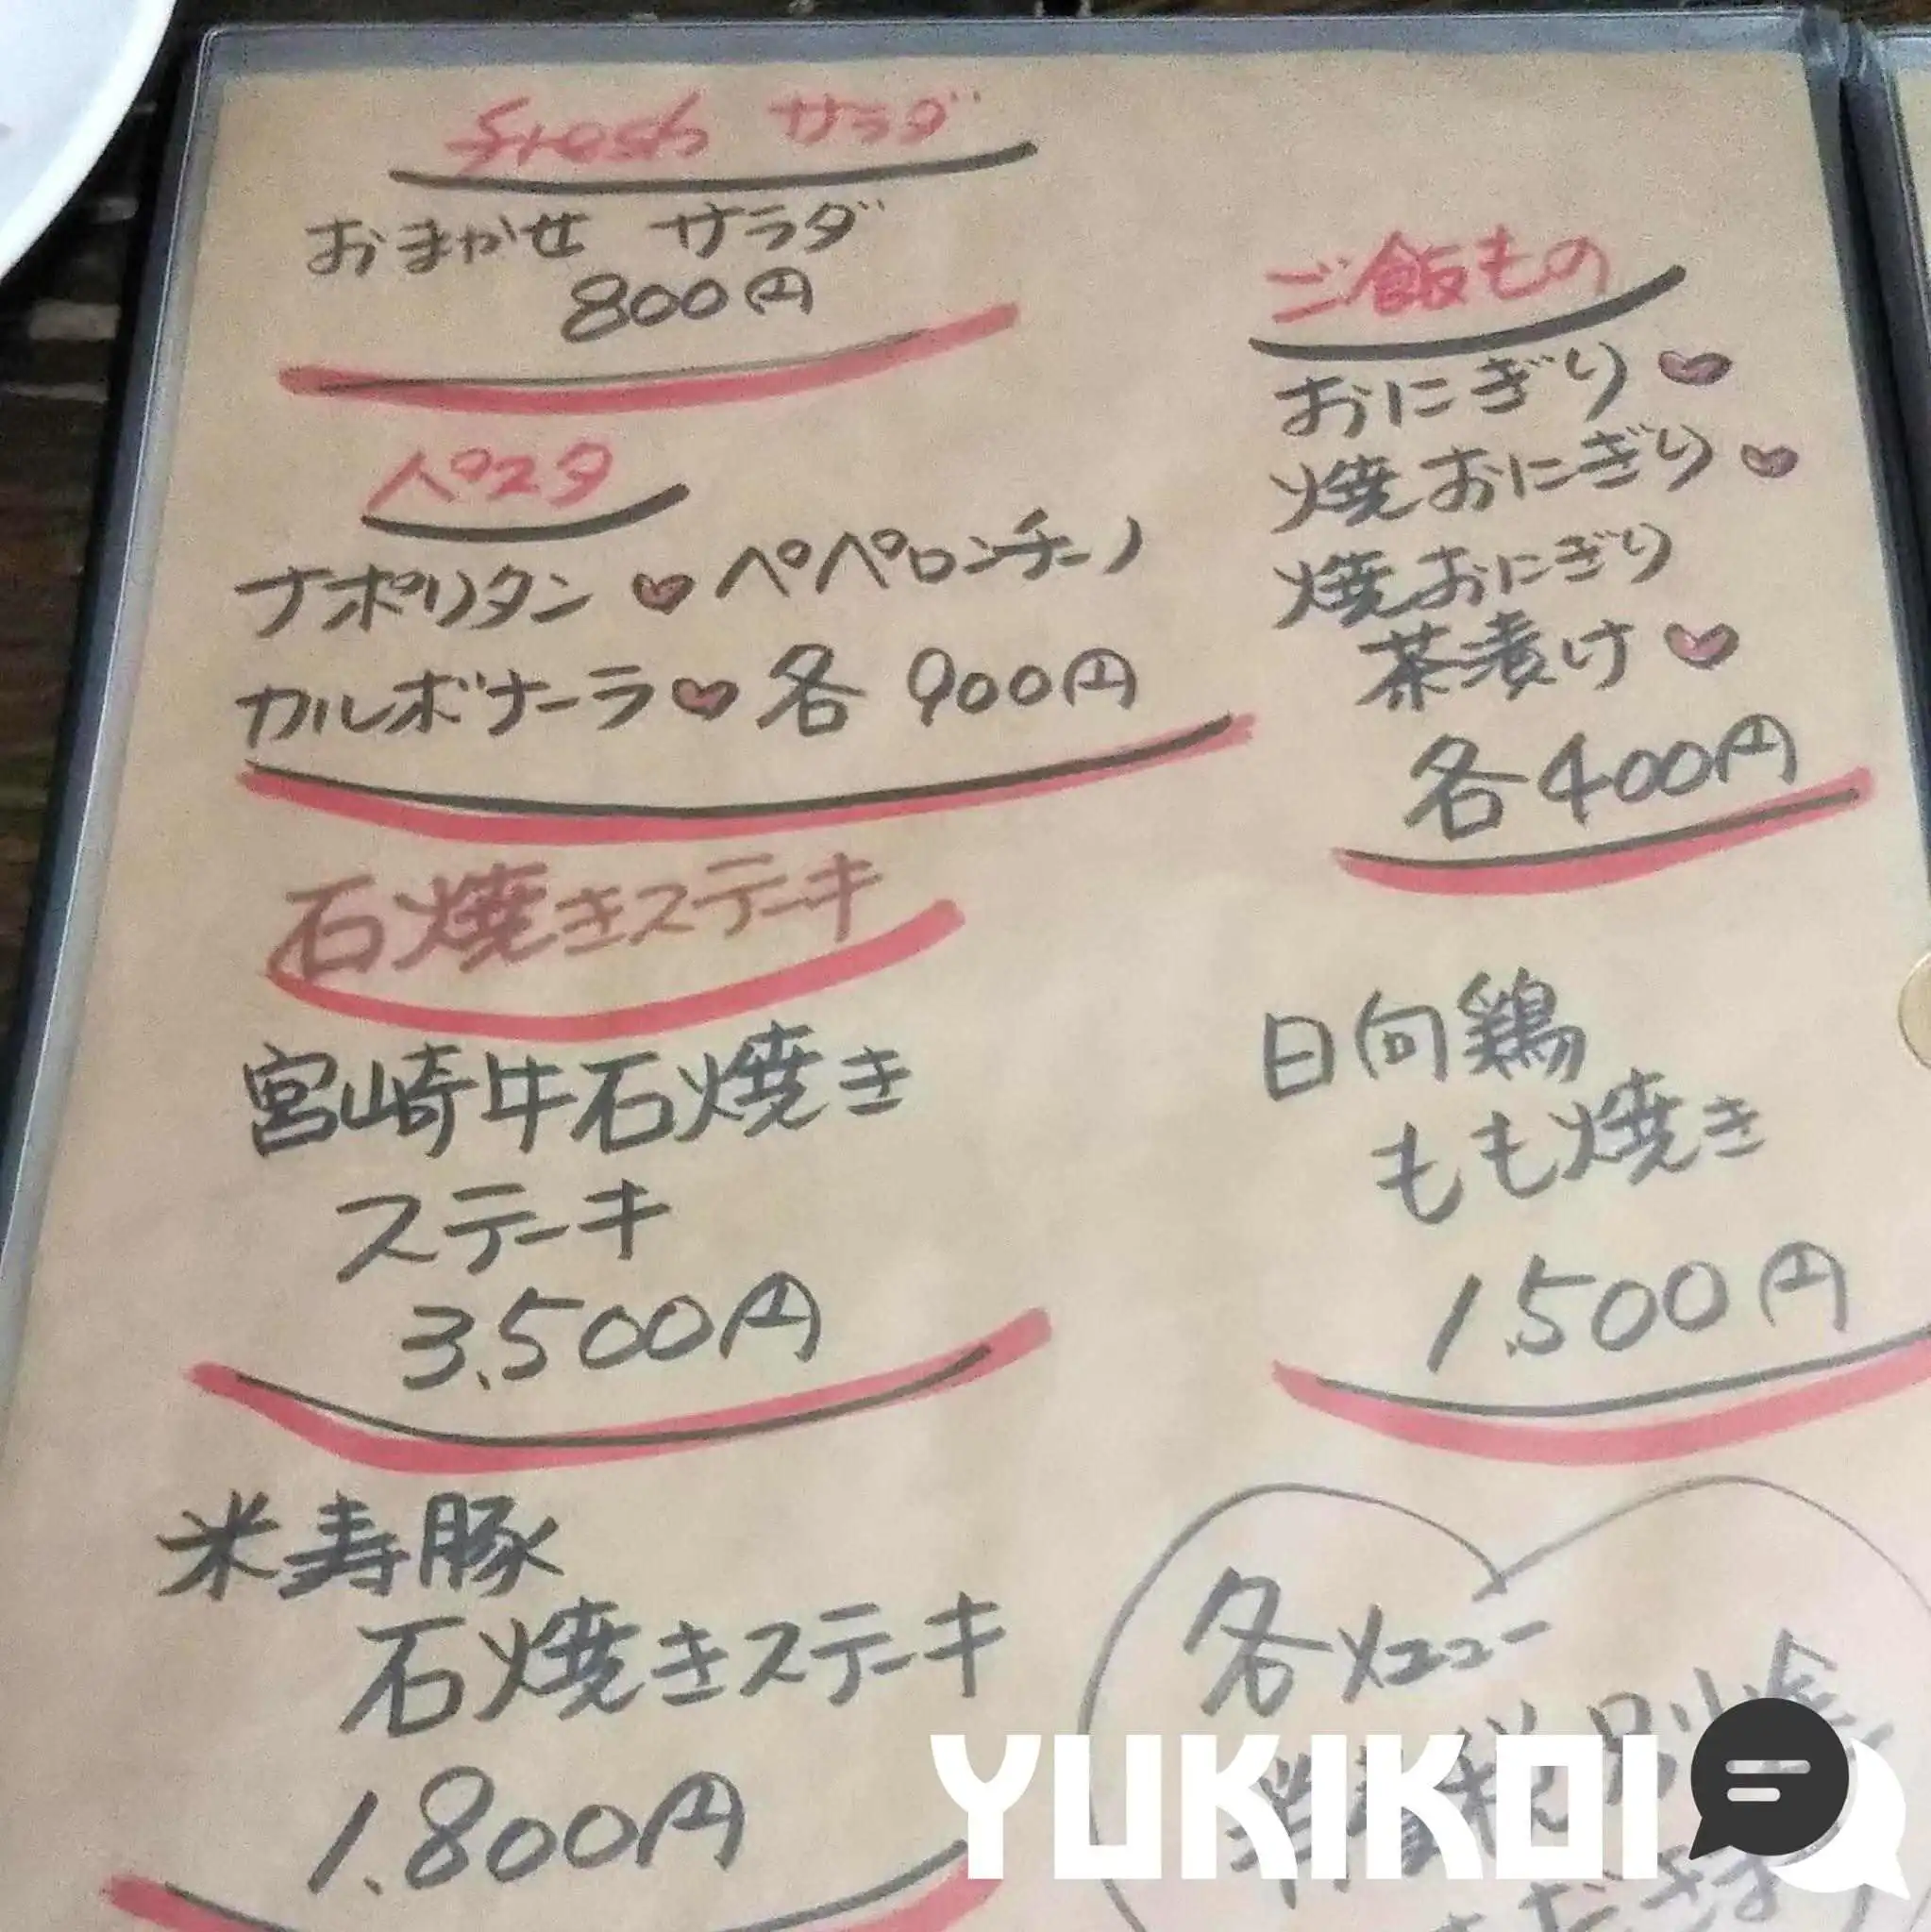 fresh サラダ
おまかせ サラダ
800円
パスタ
ナポリタン ♥ ペペロンチーノ
カルボナーラ ♥ 各 900円
石焼きステーキ
宮崎牛石焼き
ステーキ
3,500円
米寿豚
石焼きステーキ
1,800円
ご飯もの
おにぎり ♥
焼おにぎり ♥
焼おにぎり
茶漬け ♥
各400円
日向鶏
もも焼き
1,500円
各メニュー
税別
YUKIKOI